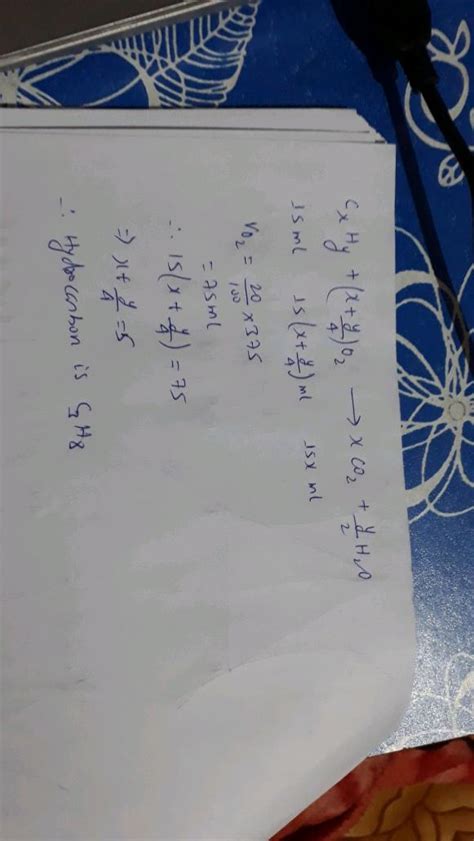 CxHy + (x+y/4)O2 ⟶ xCO2 + y/2 H2O
15ml 15(x+y/4)ml 15x ml
VO2 = 20/100 × 375
= 75ml
∴ 15(x + y/4) = 75
⇒ x + y/4 = 5
∴ Hydrocarbon is C3H8